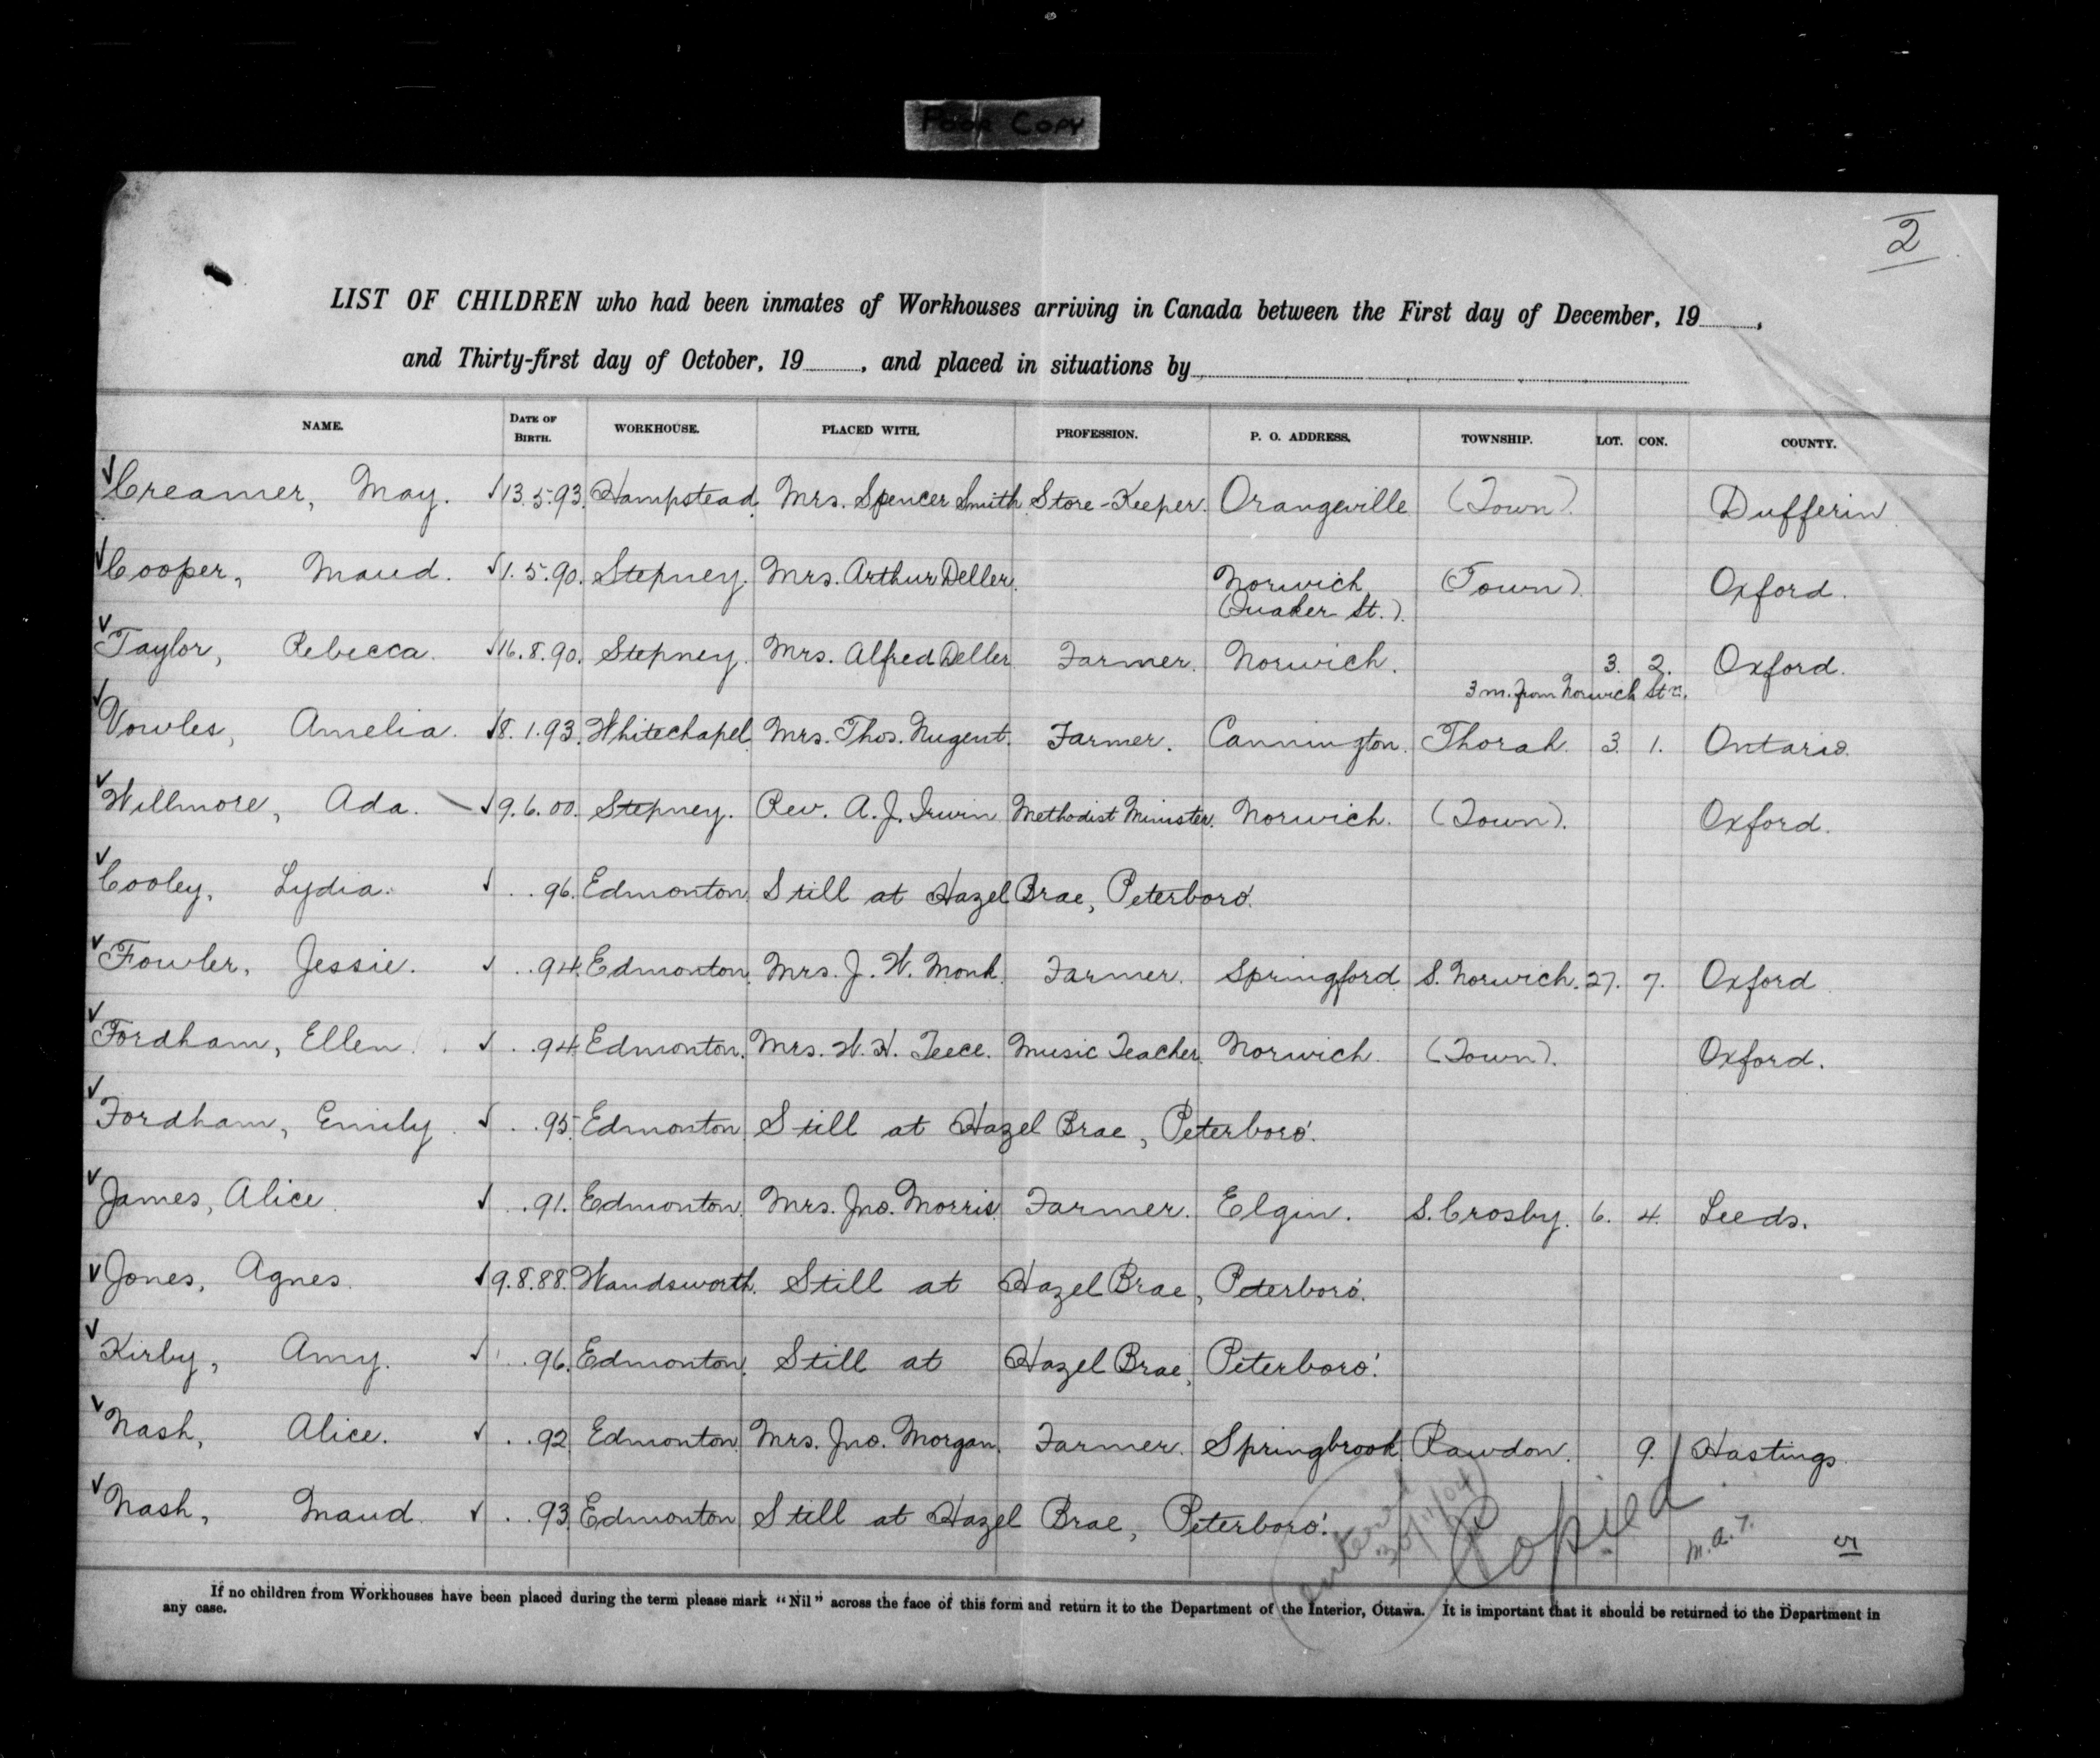 Poor Copy
2
LIST OF CHILDREN who had been inmates of Workhouses arriving in Canada between the First day of December, 19......,
and Thirty-first day of October, 19......, and placed in situations by
NAME. DATE OF BIRTH. WORKHOUSE. PLACED WITH. PROFESSION. P. O. ADDRESS. TOWNSHIP. LOT. CON. COUNTY.
✓Creamer, May. ✓13.5.93. Hampstead. Mrs. Spencer Smith. Store-Keeper. Orangeville. (Town). Dufferin.
✓Cooper, Maud. ✓1.5.90. Stepney. Mrs. Arthur Deller. Norwich (Town). Oxford.
(Quaker St.).
✓Taylor, Rebecca. ✓16.8.90. Stepney. Mrs. Alfred Deller. Farmer. Norwich. 3. 2. Oxford.
3 m. from Norwich Stn.
✓Vowles, Amelia. ✓8.1.93. Whitechapel. Mrs. Thos. Nugent. Farmer. Cannington. Thorah. 3. 1. Ontario.
✓Willmore, Ada. ✓9.6.00. Stepney. Rev. A. J. Irwin Methodist Minister. Norwich. (Town). Oxford.
✓Cooley, Lydia. ✓ . . 96. Edmonton. Still at Hazel Brae, Peterboro'.
✓Fowler, Jessie. ✓ . . 94. Edmonton. Mrs. J. W. Monk. Farmer. Springford. S. Norwich. 27. 7. Oxford.
✓Fordham, Ellen. ✓ . . 94. Edmonton. Mrs. W. H. Teece. Music Teacher. Norwich. (Town). Oxford.
✓Fordham, Emily. ✓ . . 95. Edmonton. Still at Hazel Brae, Peterboro'.
✓James, Alice. ✓ . . 91. Edmonton. Mrs. Jno. Morris. Farmer. Elgin. S. Crosby. 6. 4. Leeds.
✓Jones, Agnes. ✓9.8.88. Wandsworth. Still at Hazel Brae, Peterboro'.
✓Kirby, Amy. ✓ . . 96. Edmonton. Still at Hazel Brae, Peterboro'.
✓Nash, Alice. ✓ . . 92. Edmonton. Mrs. Jno. Morgan. Farmer. Springbrook. Rawdon. 9. Hastings.
✓Nash, Maud. ✓ . . 93. Edmonton. Still at Hazel Brae, Peterboro'.
Entered
30/11/04
Copied
M.A.T.
If no children from Workhouses have been placed during the term please mark "Nil" across the face of this form and return it to the Department of the Interior, Ottawa. It is important that it should be returned to the Department in
any case.